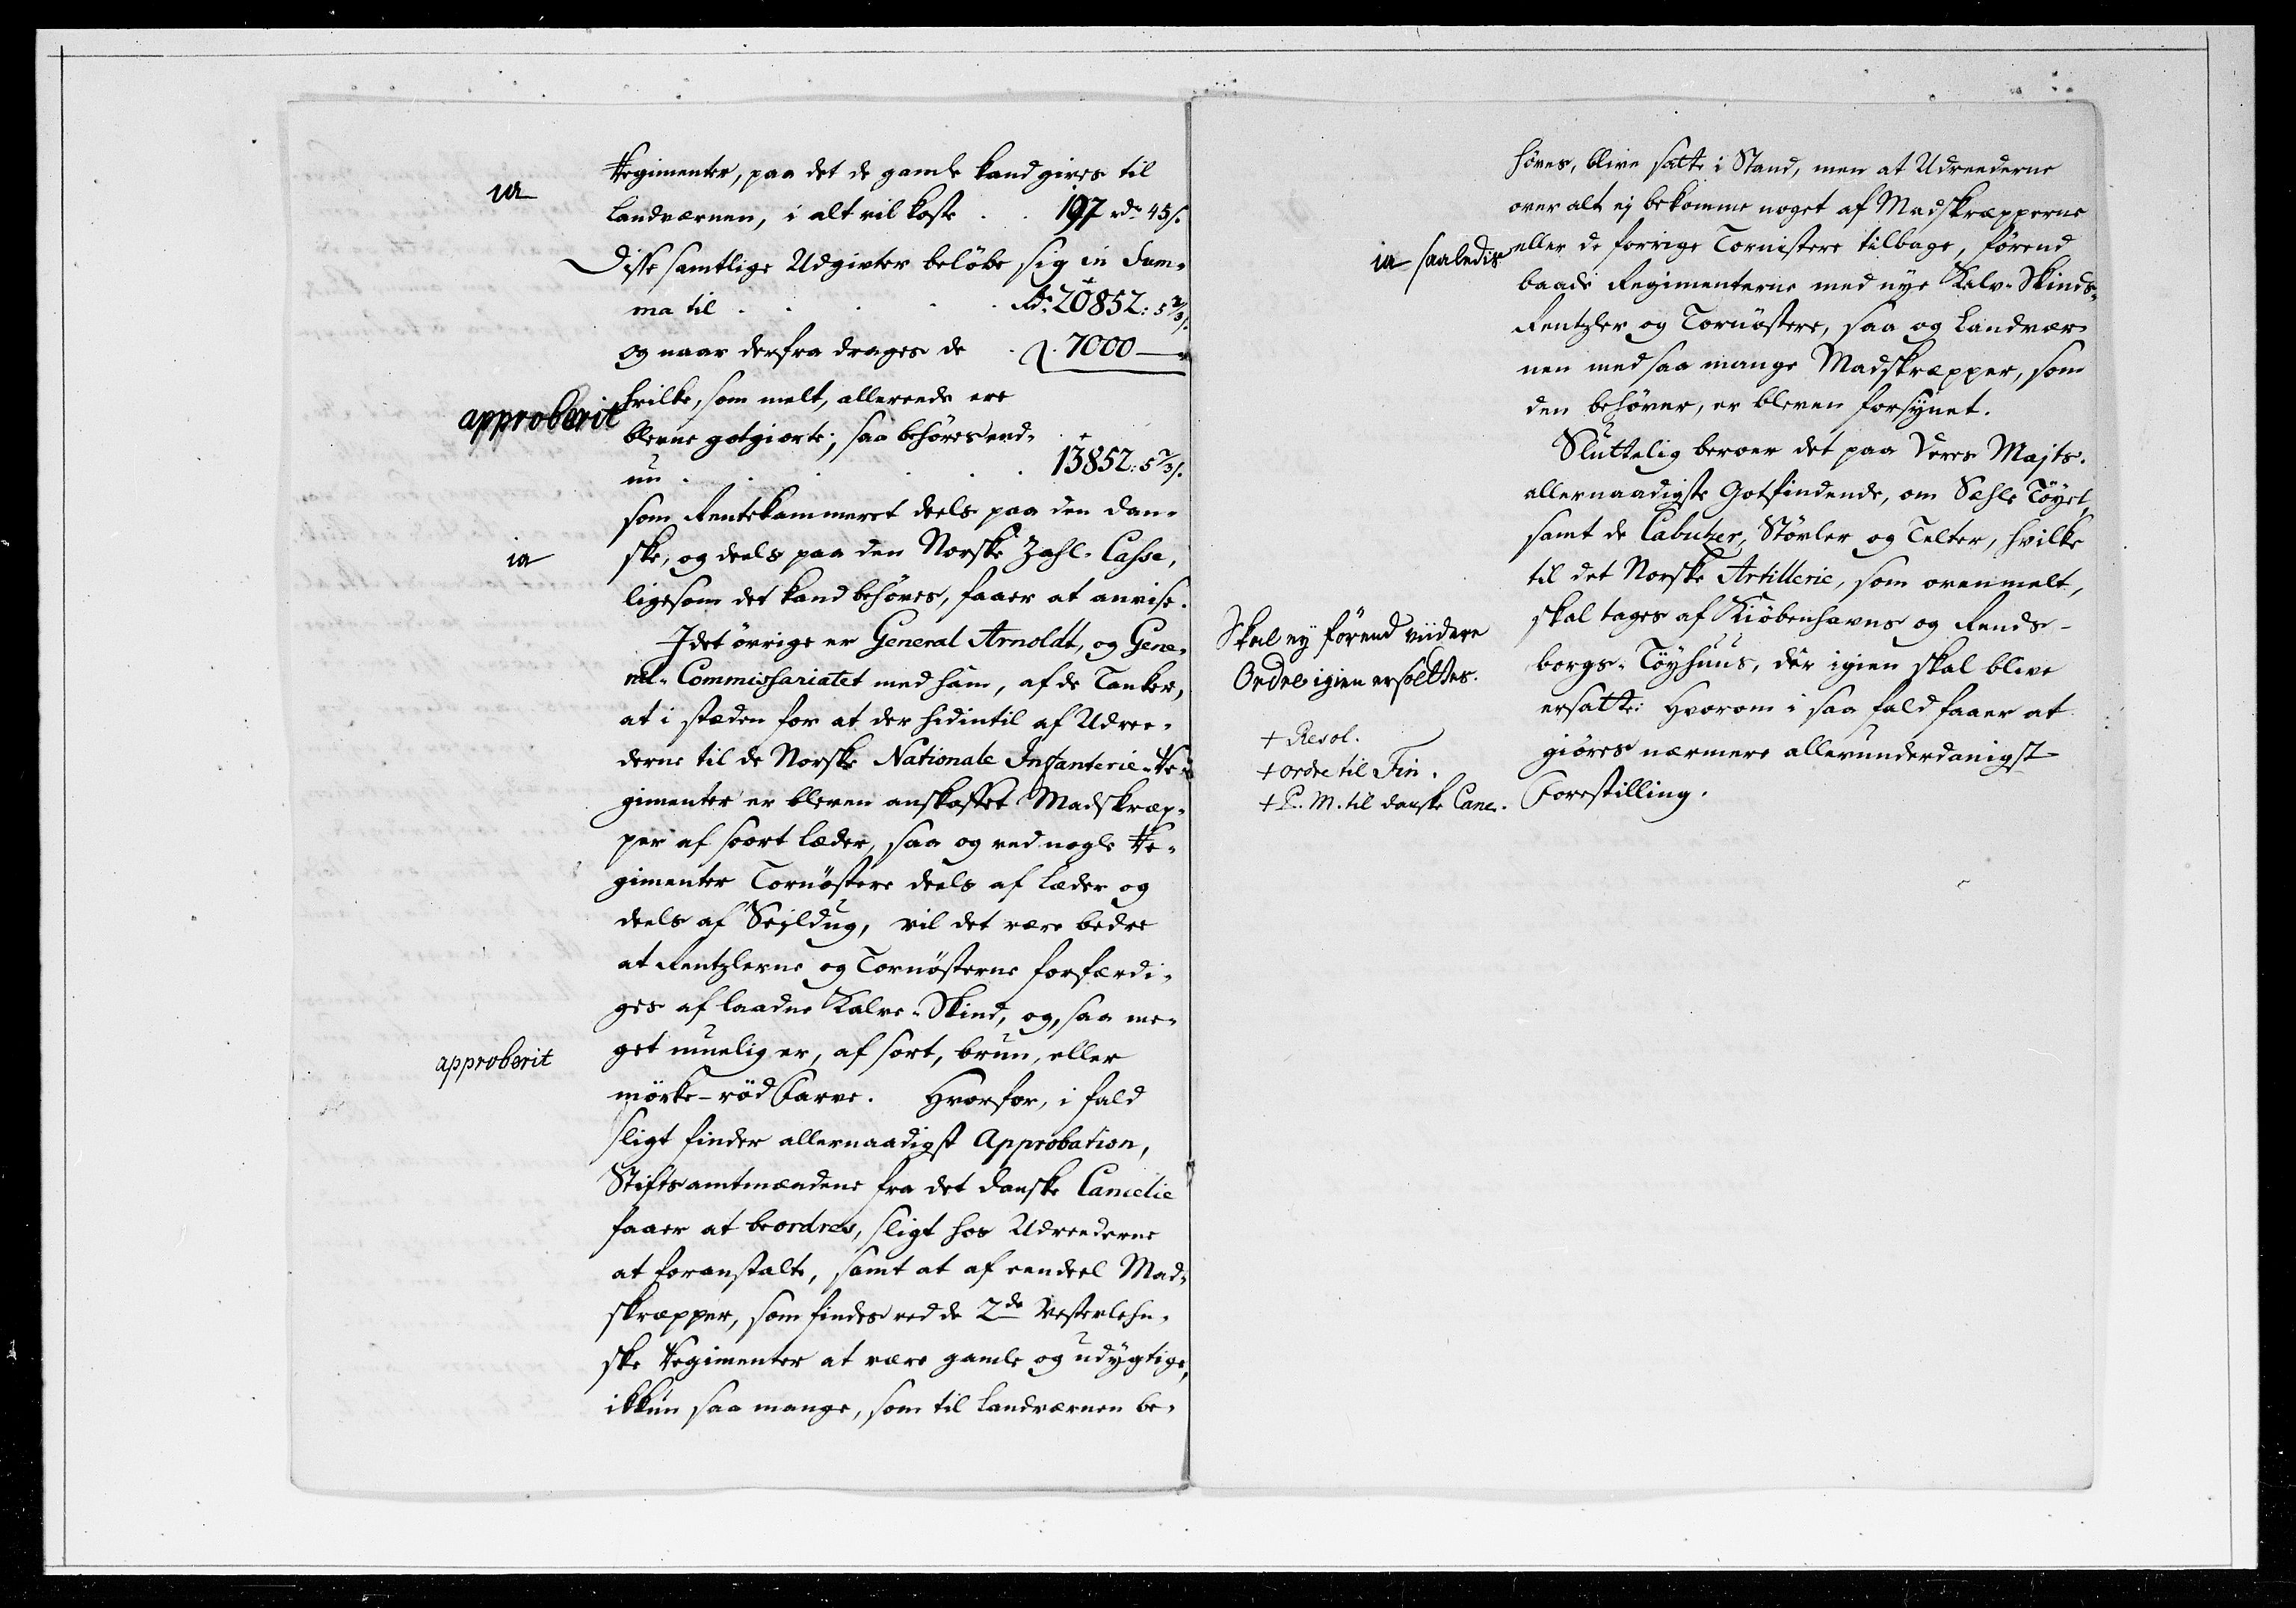 Regimenter, paa det de gamle kand gives til
ia
Landværnen, i alt vil koste . . 197 rd. 45 s.
Disse samtlige Udgivter beløbe sig in Sum-
ma til . . . . Rdr. 20852: 5 2/3 s.
og naar derfra drages de . . 7000 —
hvilke, som melt, allereede ere
approberit
blevne godgiorte; saa behøves end-
nu . . . . . 13852: 5 2/3 s.
som Rentekammeret deels paa den dan-
ia
ske, og deels paa den Norske Zahl-Casse,
ligesom det kand behøves, faaer at anvise.
I det øvrige er General Arnoldt, og Gene-
ral-Commissariatet med ham, af de Tanker,
at i stæden for at der hidintil af Udree-
derne til de Norske Nationale Infanterie-Re-
gimenter er bleven anskaffet Madskræp-
per af sort læder, saa og ved nogle Re-
gimenter Tornøstere deels af læder og
deels af Seyldug, vil det være bedre
at Rentzlerne og Tornøsterne forfærdi-
ges af laadne Kalve-Skind, og, saa me-
approberit
get muelig er, af sort, brun, eller
mørke-rød Farve. Hvorfor, i fald
sligt finder allernaadigst Approbation,
Stiftsamtmændene fra det danske Cancelie
faaer at beordres, sligt hos Udreederne
at foranstalte, samt at af eendeel Mad-
skræpper, som findes ved de 2de Vesterlehn-
ske Regimenter at være gamle og udygtige,
ikkun saa mange, som til Landværnen be-
høves, blive satte i Stand, men at Udreederne
over alt ej bekomme noget af Madskræpperne
ia saaledis
eller de forrige Tornistere tilbage, førend
baade Regimenterne med nye Kalv-Skinds-
Rentzler og Tornøstere, saa og Landvær-
nen med saa mange Madskræpper, som
den behøver, er bleven forsynet.
Sluttelig beroer det paa Deres Majts.
allernaadigste Gotfindende, om Sehle Tøyet,
samt de Cabutzer, Støvler og Telter, hvilke
til det Norske Artillerie, som ovenmelt,
skal tages af Kiøbenhavns og Rends-
borgs-Tøyhuus, der igien skal blive
ersatte: Hvorom i saa fald faaer at
giøres nærmere allerunderdanigst
Forestilling.
Skal ey førend viidere
Ordre igien ersættes.
+ Resol.
+ ordre til Fin.
+ P. M. til danske Canc.